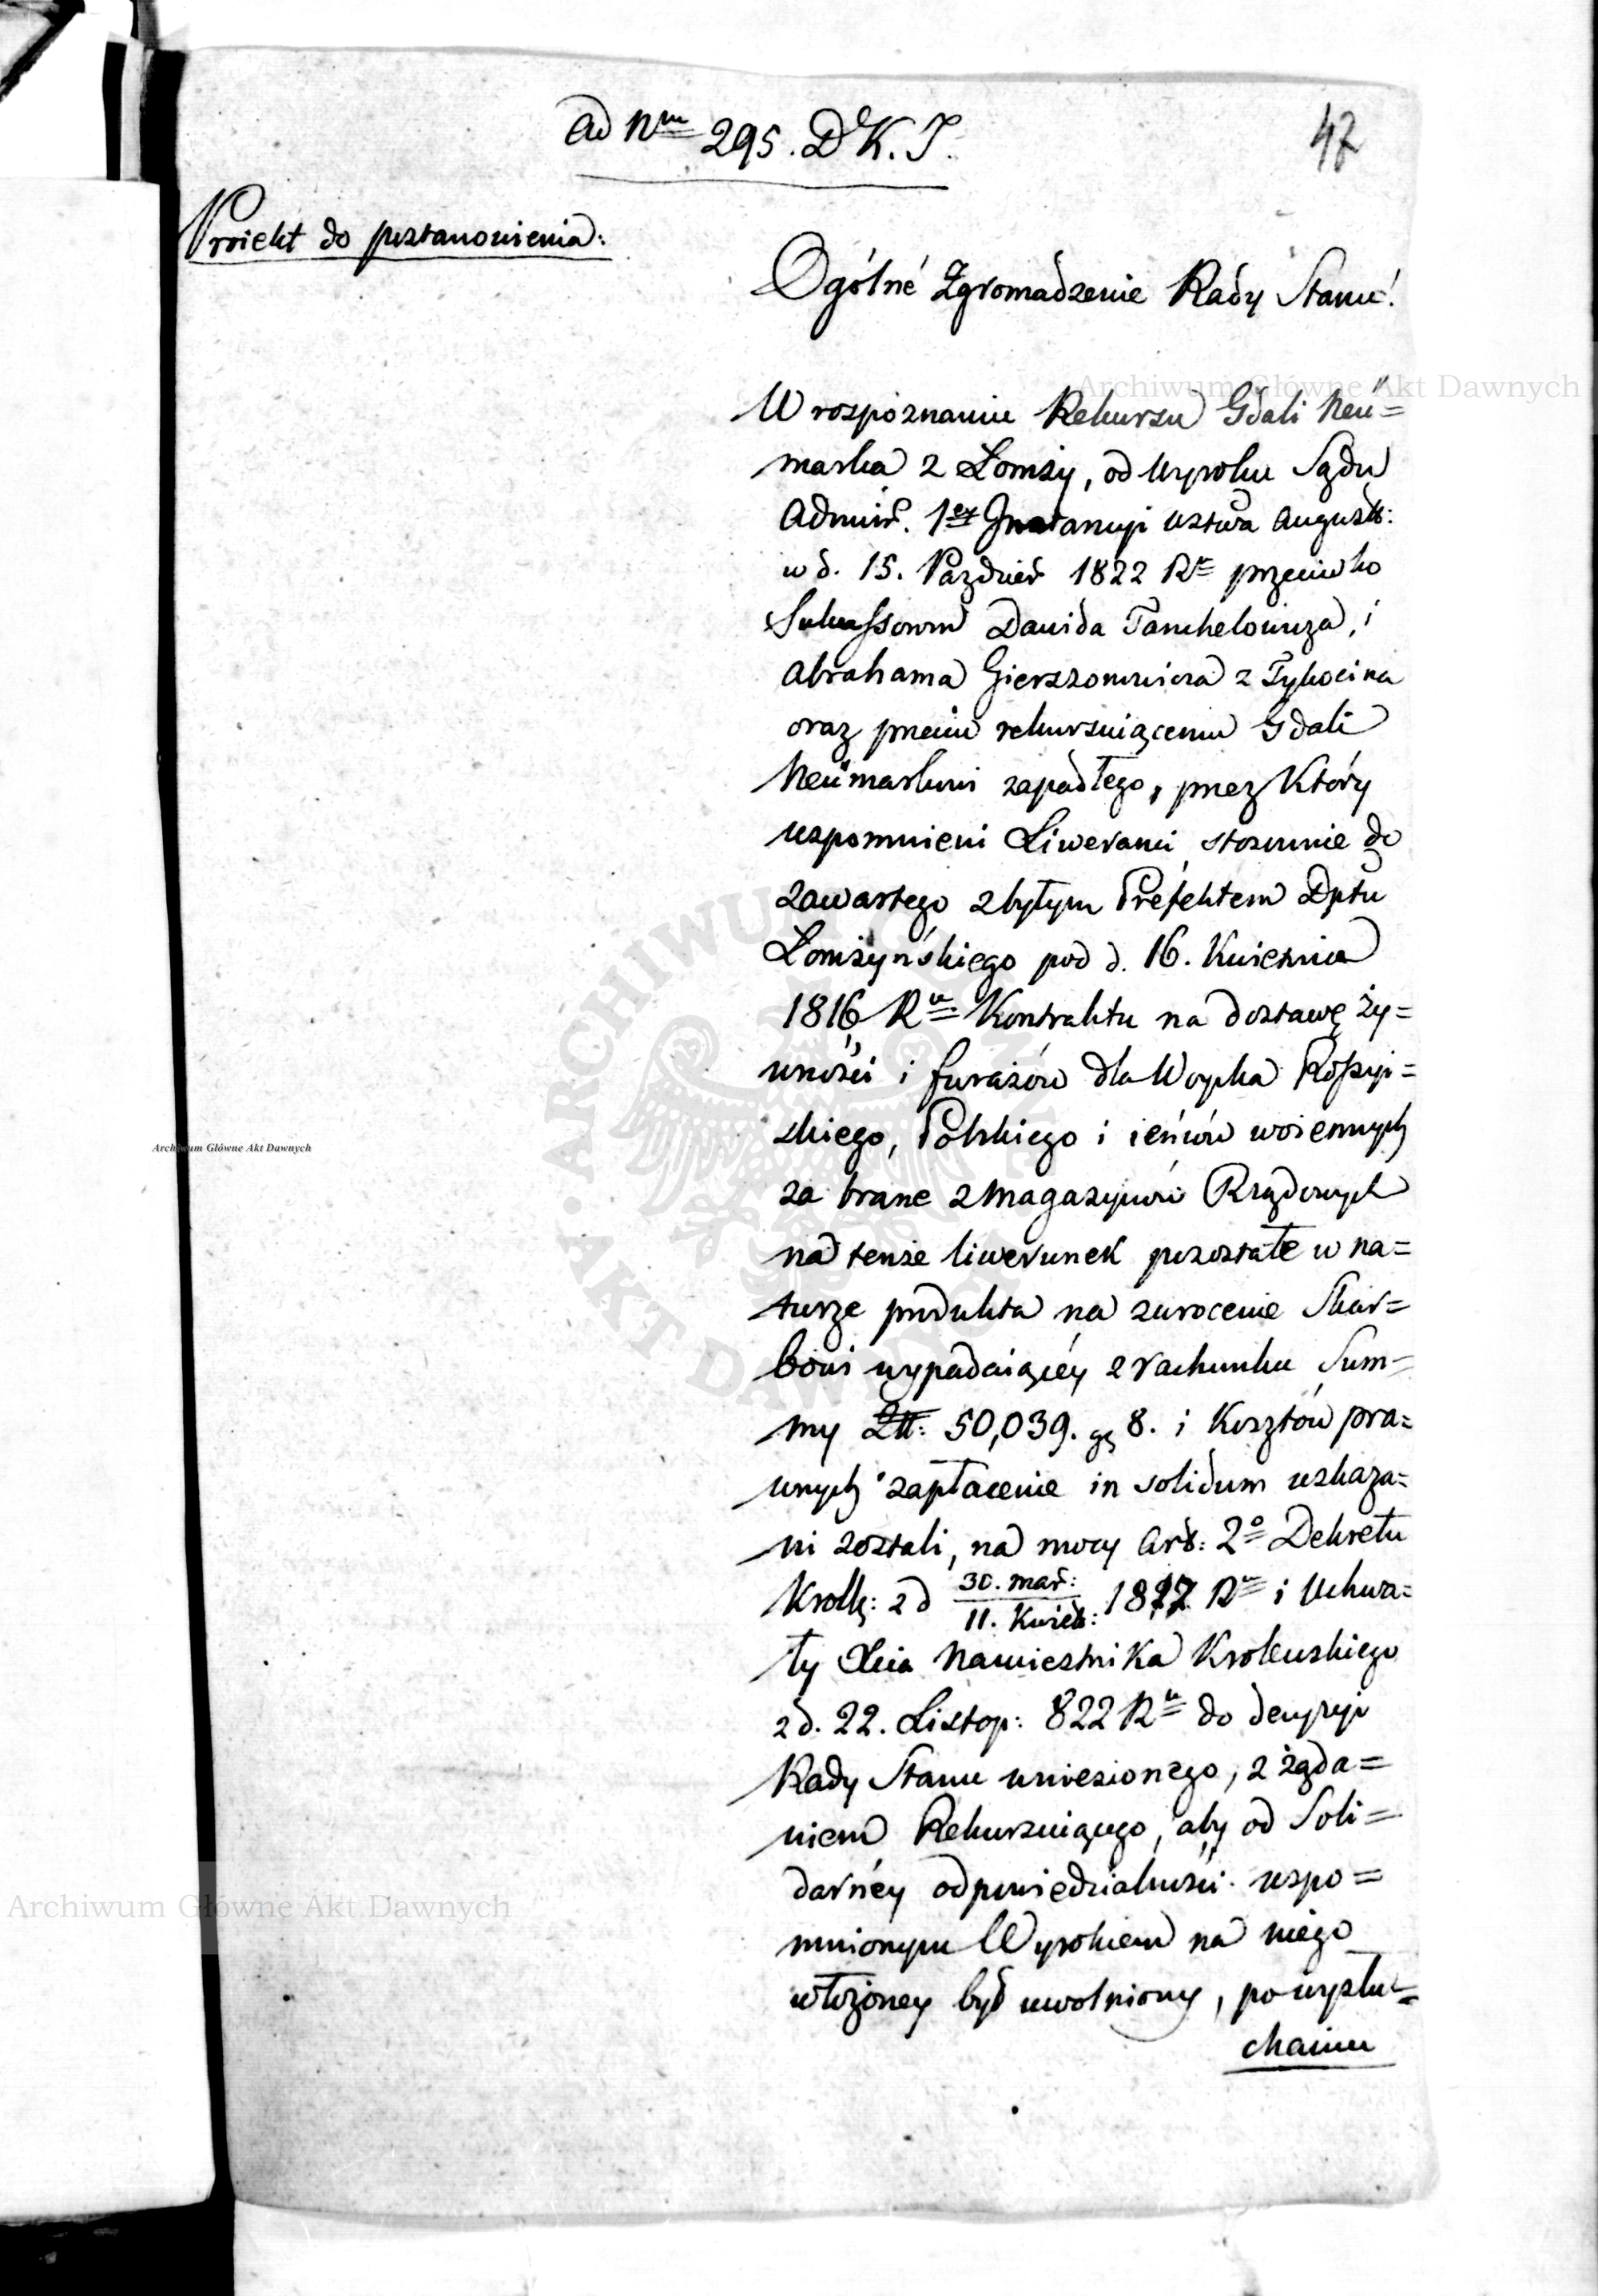 ad Nrm 295. D K. J.
47
Proiekt do postanowienia:
Ogólné Zgromadzenie Rady Stanu.
W rozpoznaniu Rekursu Gdali Neü=
marka z Łomży, od Wyroku Sądu
Admin. 1ey Instancyi Wztwa August:
w d. 15. Paździer 1822 Ru przeciwko
Sukcessorom Dawida Tanchelowicza, i
Abrahama Gierszonowicza z Tykocina
oraz przeciw rekursuiącemu Gdali
Neümarkowi zapadłego, przez który
wspomnieni Liweranci, stosownie do
zawartego z byłym Prefektem Dptu
Łomżyńskiego pod d. 16. Kwietnia
1816 Ru Kontraktu na dostawę ży=
wności i furażów dla Woyska Rossyi=
skiego, Polskiego i ieńców woiennych
za brane z magazynów Rządowych
na tenże liwerunek pozostałe w na=
turze produkta na zwrocenie Skar=
bowi wypadaiącéy z rachunku Sum=
my Złł: 50,039. gr 8. i Kosztów pra=
wnych zapłacenie in solidum wskaza=
ni zostali, na mocy Art: 2o Dekretu
Krolk: z d 30. Mar: / 11. Kwiet: 1817 Ru i Uchwa=
ły Xcia Namiestnika Krolewskiego
z d. 22. Listop: 822 Ru do decyzyi
Rady Stanu wniesionego, z żąda=
niem Rekursuiącego, aby od Soli=
darnéy odpowiedzialności wspo=
mnionym Wyrokiem na niego
włożoney był uwolniony, po wysłu=
chaniu
Archiwum Główne Akt Dawnych
Archiwum Główne Akt Dawnych
Archiwum Główne Akt Dawnych